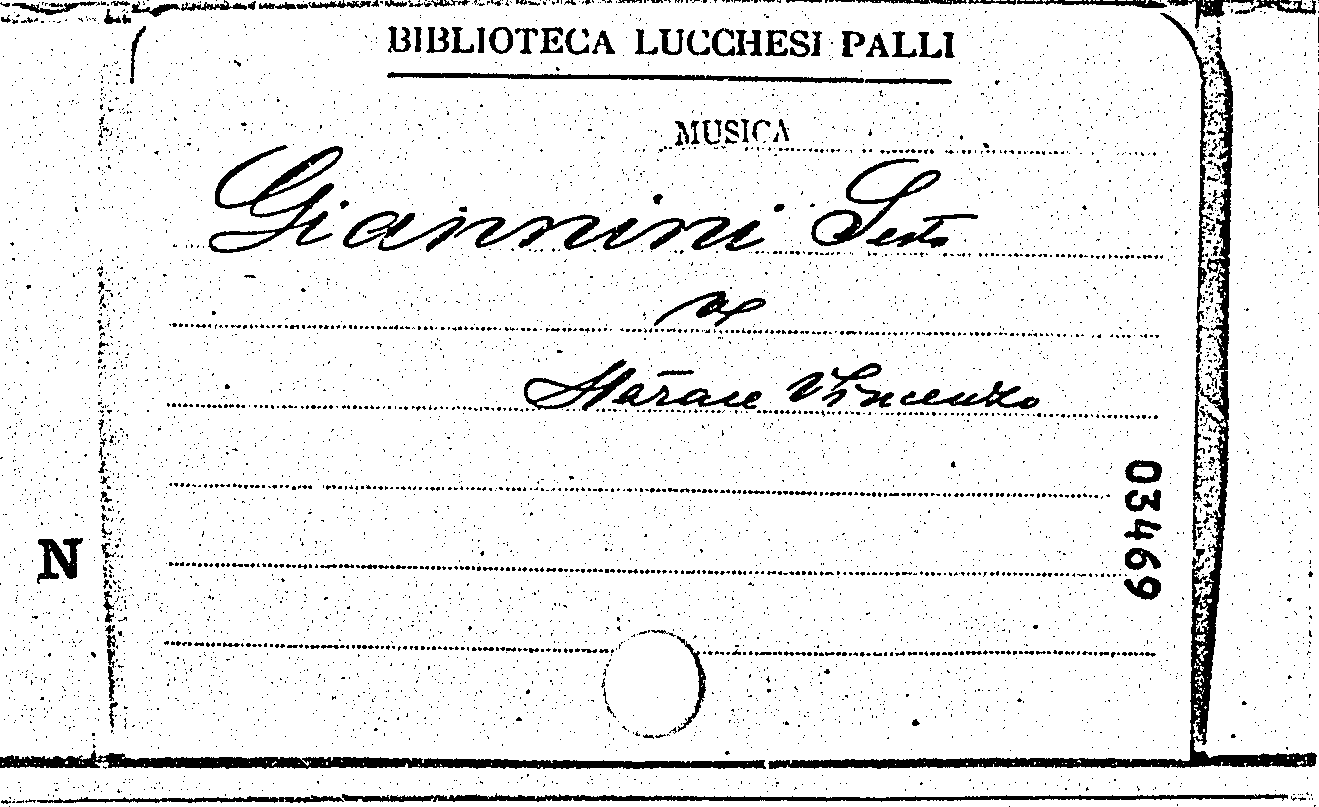 BIBLIOTECA LUCCHESI PALLI
MUSICA
Giannini Sesto
Vincenzo
03469
N